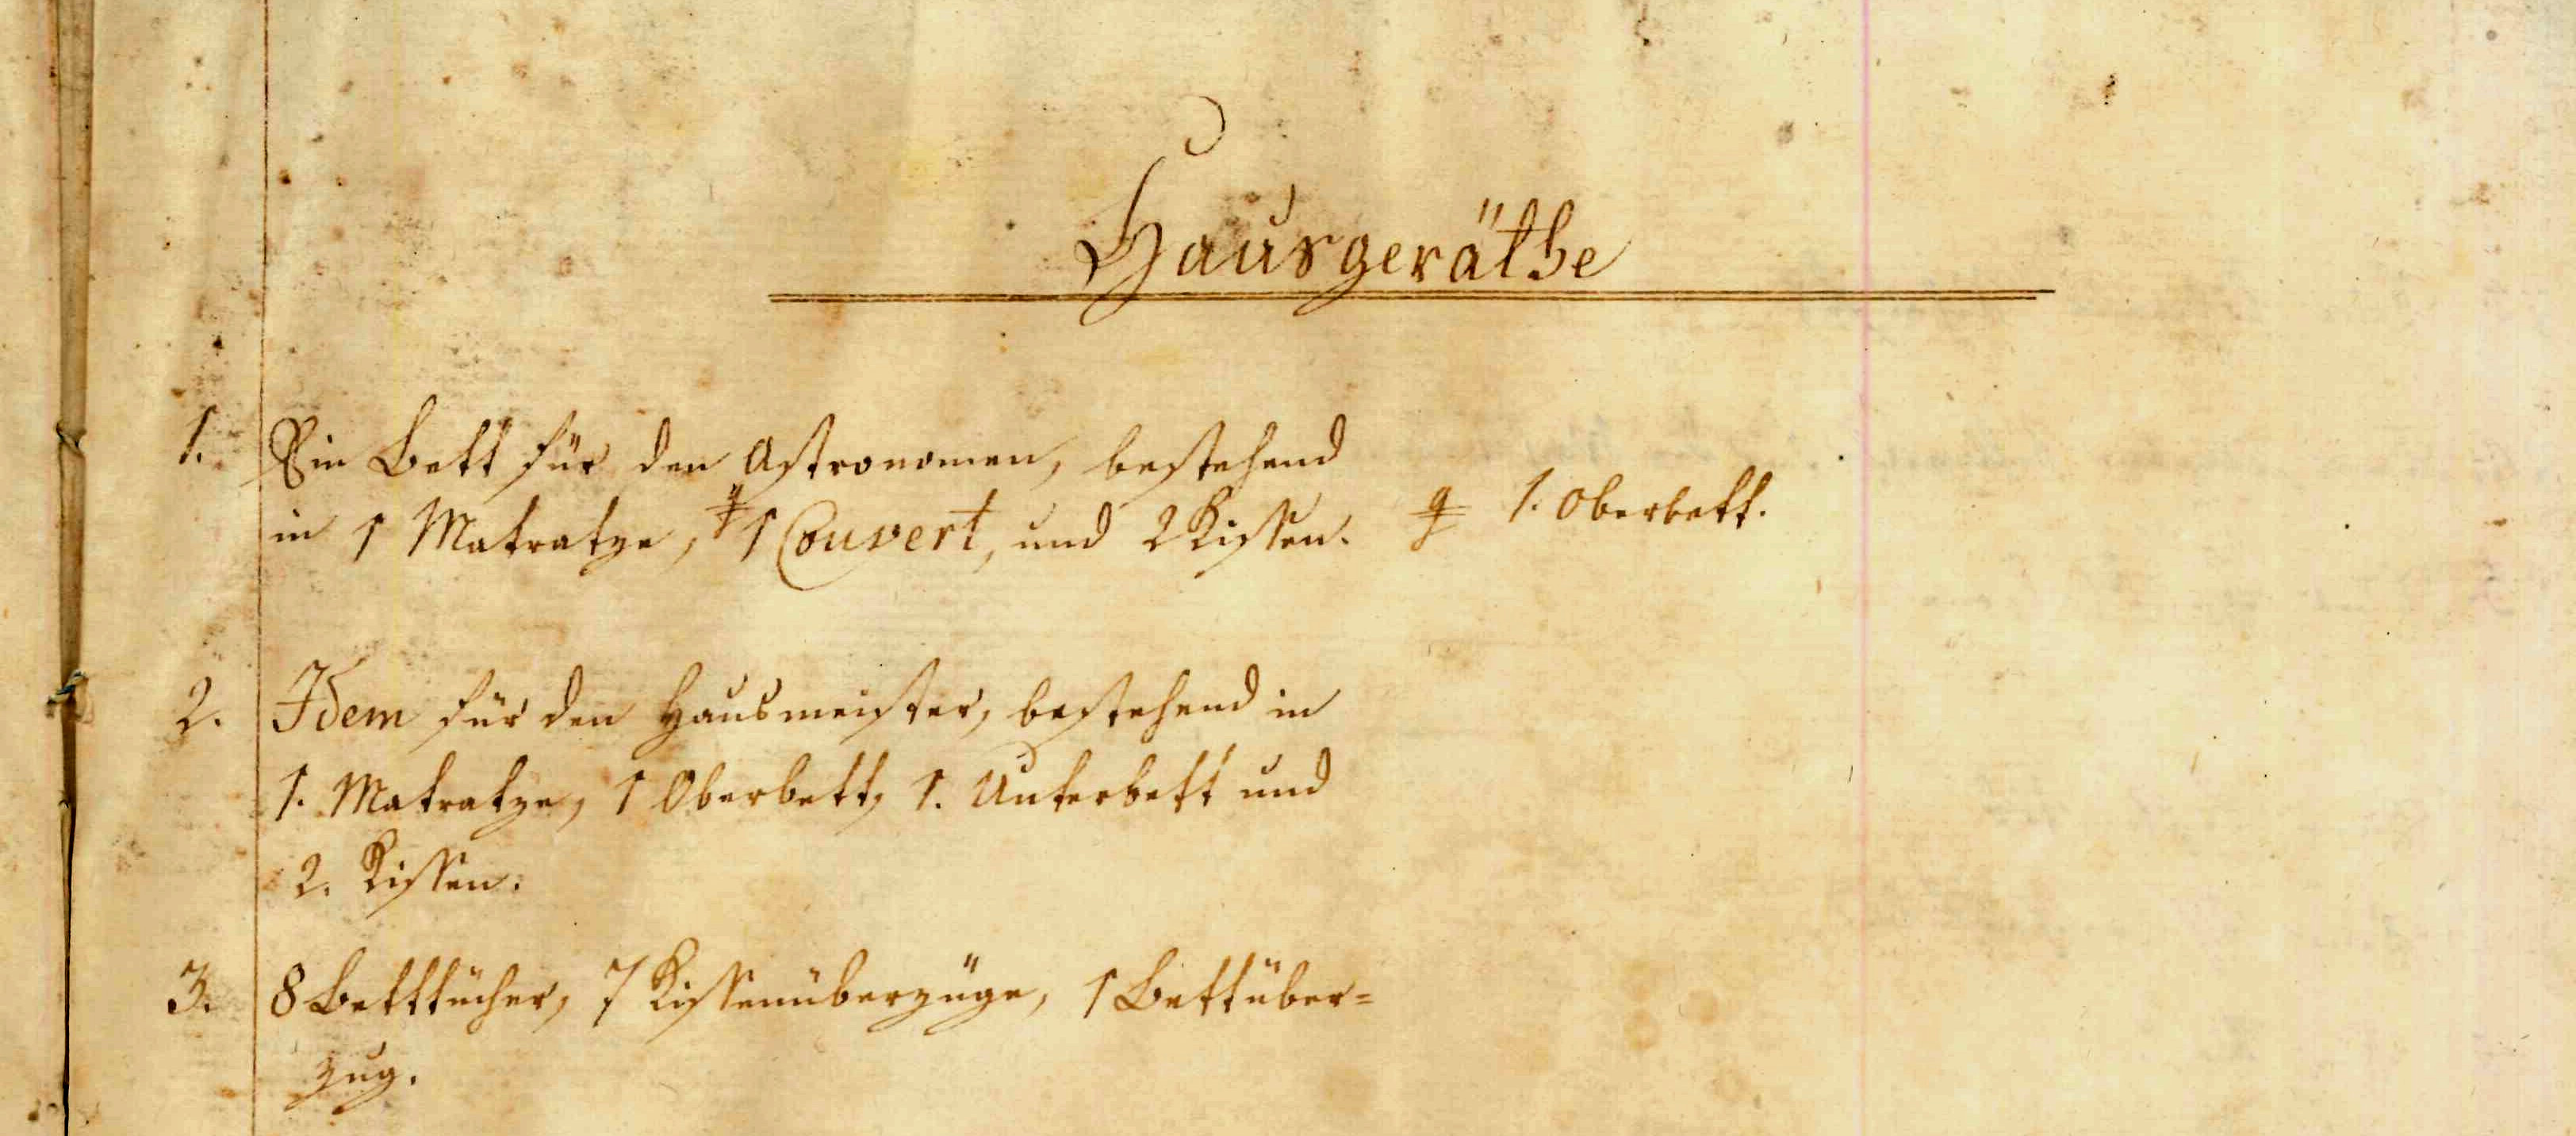 Hausgeräthe
1. Ein Bett für den Astronomen, bestehend
in 1 Matratze, 1 Couvert, und 2 Kissen. 1. Oberbett.
2. Idem für den Hausmeister, bestehend in
1. Matratze, 1 Oberbett, 1. Unterbett und
2. Kissen.
3. 8 Betttücher, 7 Kissenüberzüge, 1 Bettüber=
zug.